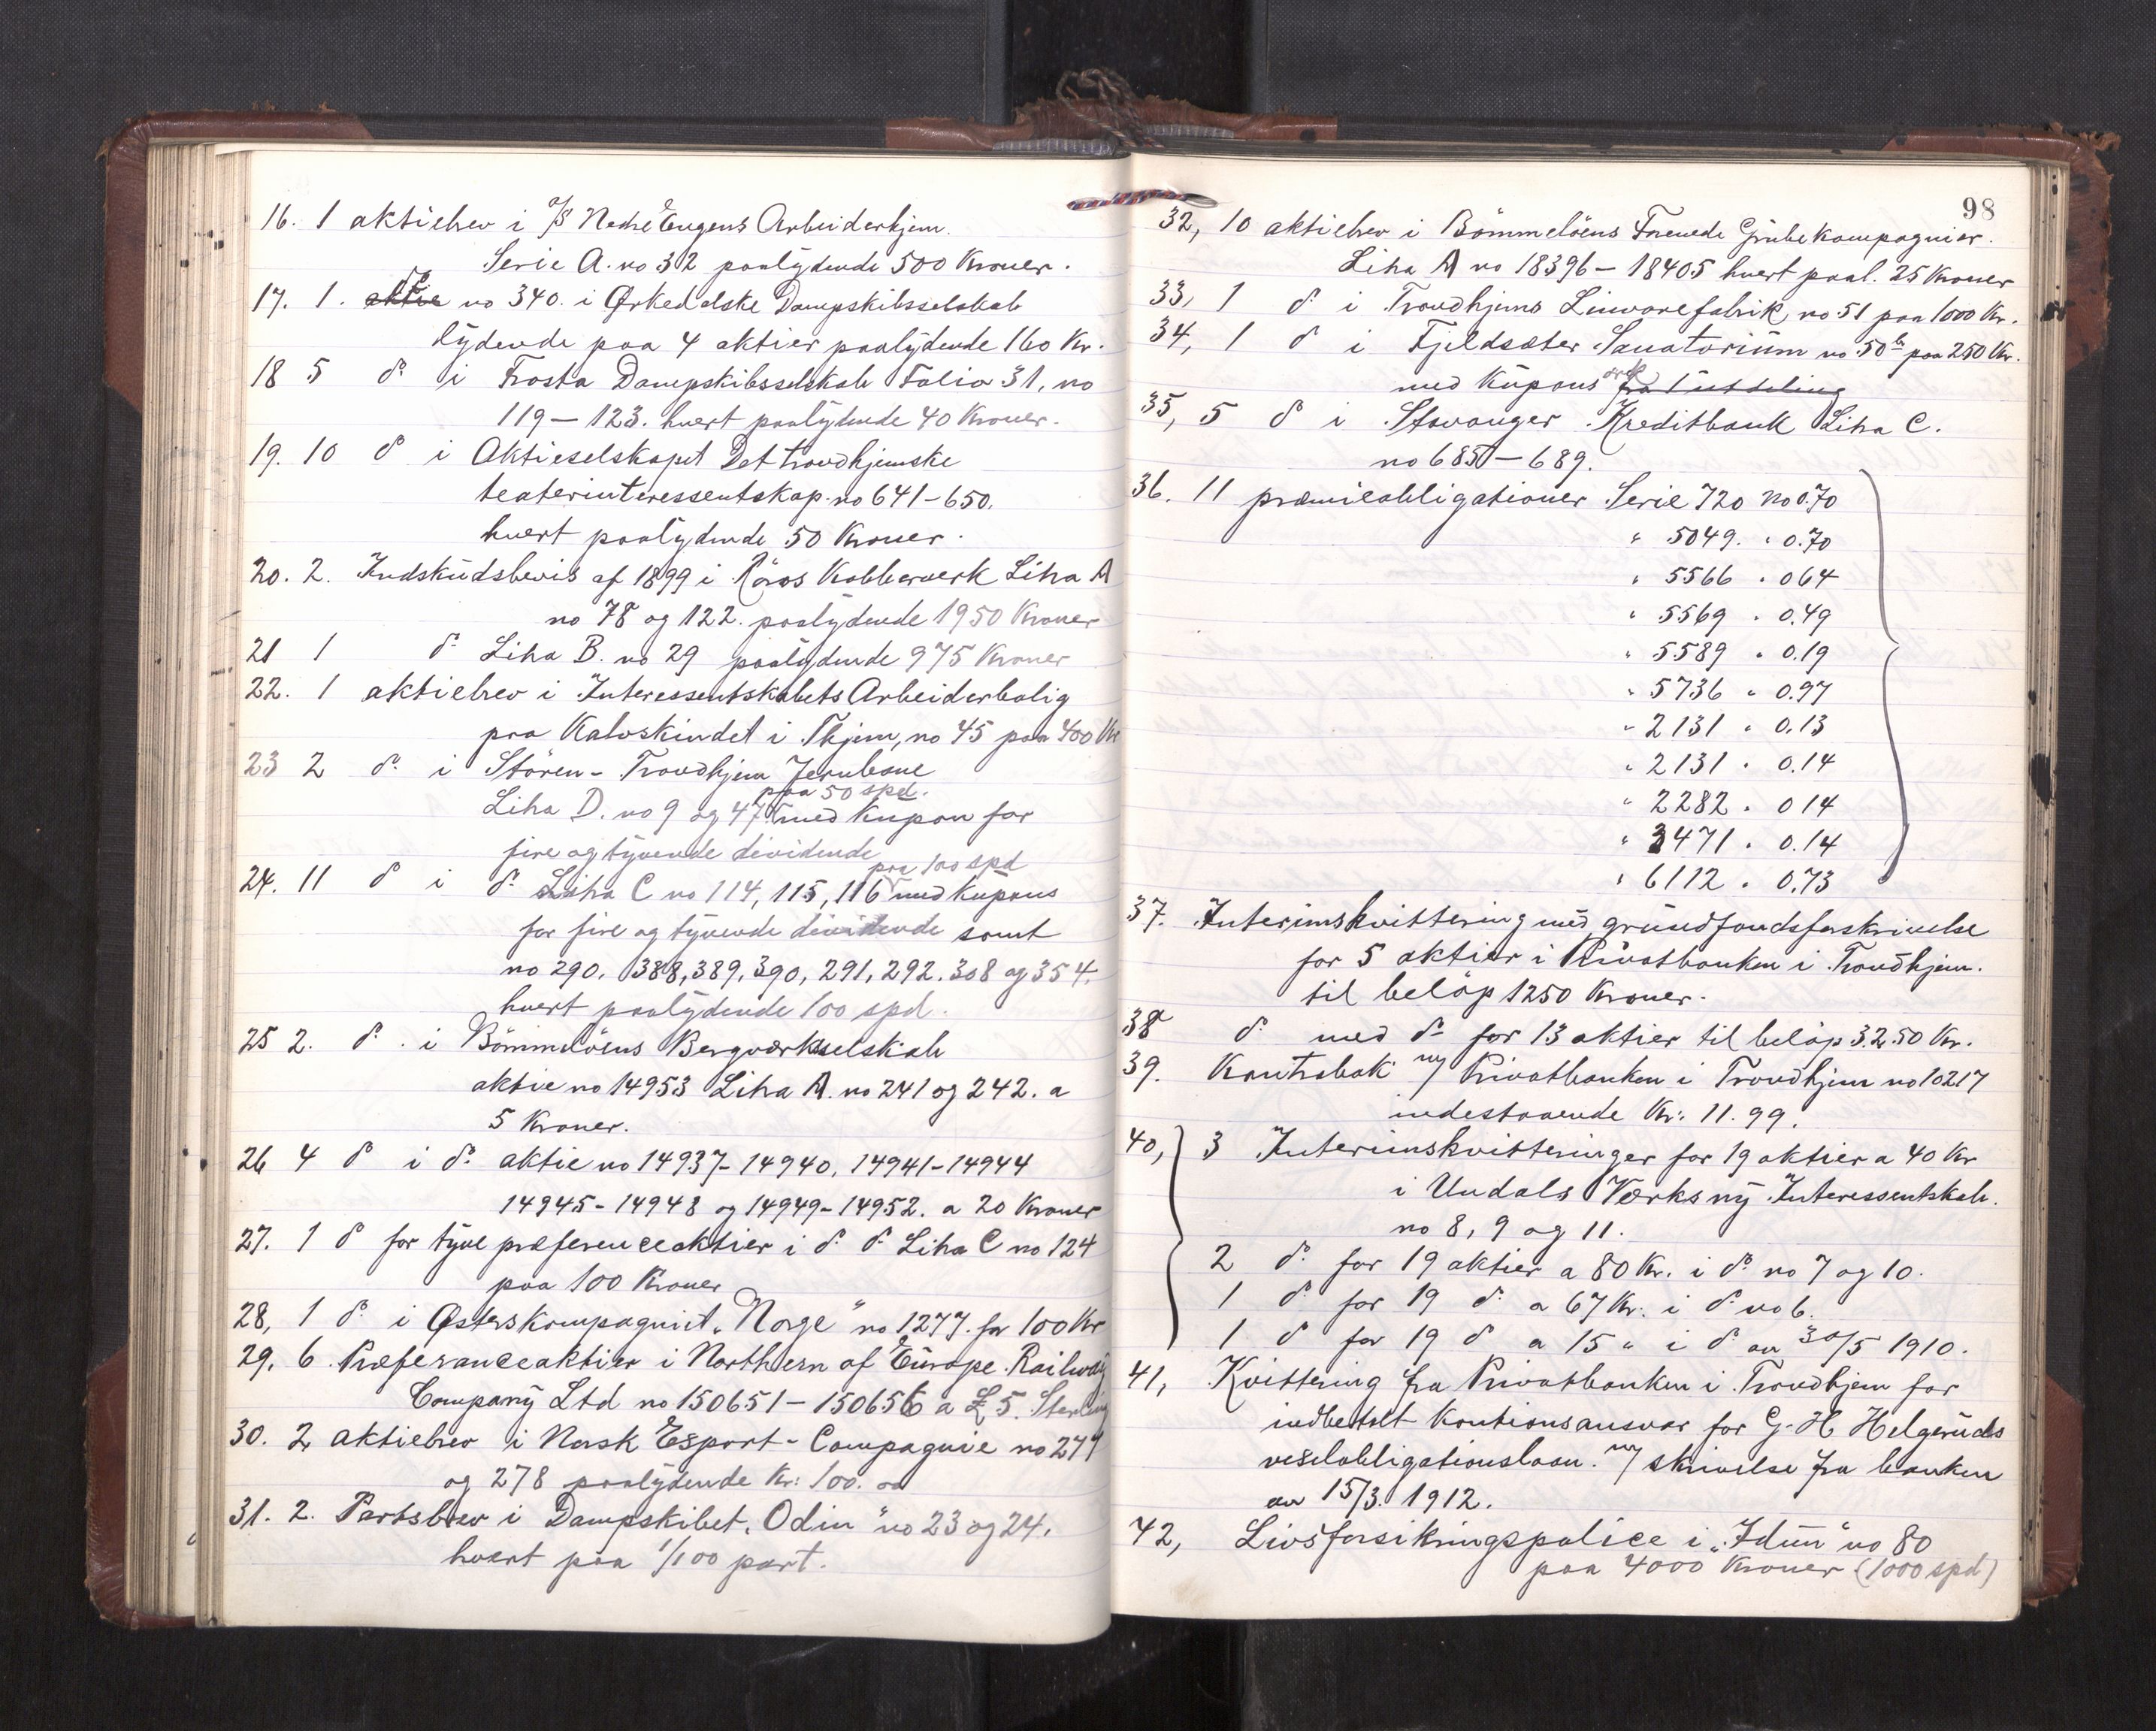 16. 1 aktiebrev i A/S Nedre Engens Arbeiderhjem.
Serie A. no 32 paalydende 500 Kroner.
17. 1. do no 340. i Ørkedalske Dampskibsselskab
lydende paa 4 aktier paalydende 160 Kr.
18 5 do i Frosta Dampskibsselskab Folio 31, no
119 – 123. hvert paalydende 40 Kroner.
19. 10 do i Aktieselskapet Det trondhjemske
teaterinteressentskap no 641-650.
hvert paalydende 50 Kroner.
20. 2. Indskudsbevis af 1899 i Røros Kobberverk Litra A
no 78 og 122. paalydende 1950 Kroner
21 1 do Litra B. no 29 paalydende 975 Kroner
22. 1 aktiebrev i Interessentskabets Arbeiderbolig
paa Kalvskindet i Thjem, no 45 paa 400 Kr
23 2 do i Støren - Trondhjem Jernbane
paa 50 spd.
Litra D. no 9 og 47 med Kupon for
fire og tyvende dividende
paa 100 spd
24. 11 do i do Litra C no 114, 115, 116 med Kupons
for fire og tyvende dividende samt
no 290. 388, 389, 390, 291, 292. 308 og 354.
hvert paalydende 100 spd.
25 2. do. i Bømmeløens Bergværksselskab
aktie no 14953 Litra A. no 241 og 242. a
5 Kroner.
26 4 do i do aktie no 14937-14940, 14941-14944
14945-14948 og 14949-14952. a 20 Kroner
27. 1 do for tyve præferenceaktier i do do Litra C no 124
paa 100 Kroner
28, 1 do i Østerskompagniet "Norge" no 1277. for 100 Kr
29, 6. Præferanceaktier i Northern of Europe Railway
Company Ltd no 150651 – 150656 a £ 5. Sterling
30. 2 aktiebrev i Norsk Esport - Compagnie no 277
og 278 paalydende Kr: 100. –
31. 2. Partsbrev i Dampskibet "Odin" no 23 og 24.
hvert paa 1/100 part.
98
32, 10 aktiebrev i Bømmeløens Forenede Grubekompagnier.
Litra A no 18396 – 18405 hvert paal. 25 Kroner
33, 1 do i Trondhjems Linvarefabrik, no 51 paa 1000 Kr.
34, 1 do i Fjeldsæter Sanatorium no 50 b paa 250 Kr.
med Kupons fra 1 utdeling
35, 5 do i Stavanger Kreditbank Litra C.
no 685 – 689.
36. 11 præmieobligationer Serie 720 no 0.70
" 5049. " 0.70
" 5566 " 064
" 5569 " 0.49
" 5589 " 0.19
" 5736 " 0.97
" 2131 " 0.13
" 2131 " 0.14
" 2282 " 014
" 3471 " 0.14
" 6112 " 0.73
37. Interimskvittering med grundfondsforskrivelse
for 5 aktier i Privatbanken i Trondhjem.
til beløp 1250 Kroner.
38 do med do for 13 aktier til beløp 3250 Kr.
39. Kontrabok m/ Privatbanken i Trondhjem no 10217
indestaaende Kr: 11.99.
40, 3 Interimskvitteringer for 19 aktier a 40 Kr
i Undals Værks ny Interessentskab.
no 8, 9 og 11.
2 do for 19 aktier a 80 Kr. i do no 7 og 10.
1 do for 19 do a 67 Kr. i do no 6.
1 do for 19 do a 15 " i do av 30/5 1910.
41, Kvittering fra Privatbanken i Trondhjem for
indbetalt Kautionsansvar for G. H Helgeruds
vexelobligationslaan. m/ skrivelse fra banken
av 15/3. 1912.
42, Livsforsikringspolice i "Idun" no 80
paa 4000 Kroner (1000 spd)